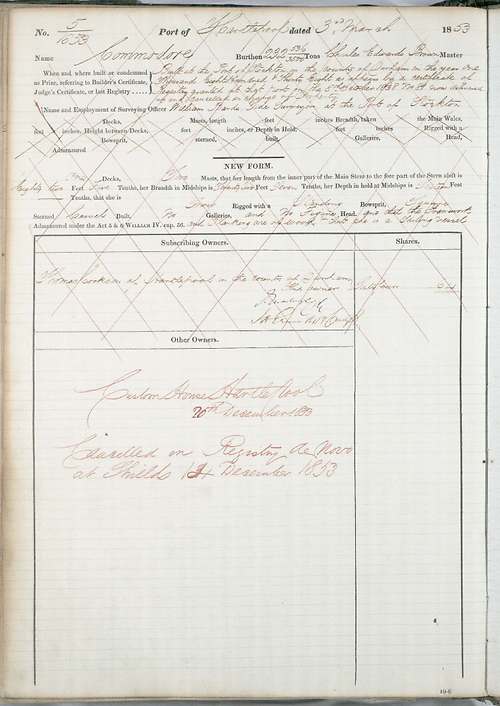 No. 5/1853 Port of Hartlepool dated 3rd March 1853
Name Commodore Burthen Tons Charles Edward Master
When and where built or condemned
as Prize, referring to Builder's Certificate,
Judge's Certificate, or last Registry
Built at the Port of Stockton in the county of Durham in the year One
Thousand Eight Hundred & Thirty Eight as appears by a certificate of
Registry granted at that Port now delivered
up and cancelled
Name and Employment of Surveying Officer William Tide Surveyor at the Port of Stockton
Decks, Masts, length feet inches Breadth, taken the Main Wales,
feet inches, Height between Decks, feet inches, or Depth in Hold, feet inches, Rigged with a
Bowsprit, sterned, built, Galleries, Head,
Admeasured
NEW FORM.
One Decks, Two Masts, that her length from the inner part of the Main Stem to the fore part of the Stern aloft is
Eighty two Feet Five Tenths, her Breadth in Midships is Feet Seven Tenths, her Depth in hold at Midships is Feet
Tenths, that she is Snow Rigged with a Standing Bowsprit, Square
Sterned Carvel Built, No Galleries, and No Figure Head and that the Framework
Admeasured under the Act 5 & 6 WILLIAM IV. cap. 56. and Planking are of wood & that she is a Sailing vessel
Subscribing Owners. Shares.
Thomas Cookson of Hartlepool in the county of Durham
Ship owner Sixty four 64
Other Owners.
Custom House Hartlepool
20th December 1853
Cancelled on Registry de Novo
at Shields 14 December 1853